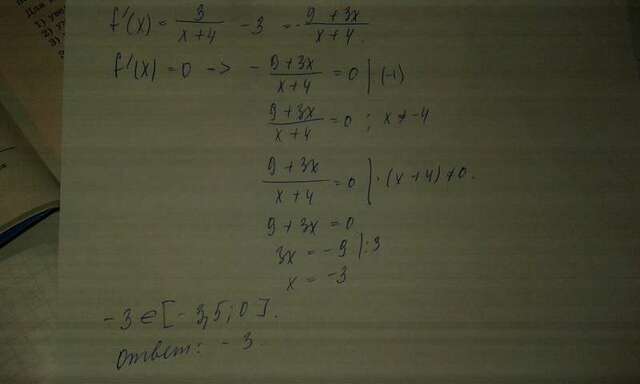 f'(x) = 3/(x+4) - 3 = - (9+3x)/(x+4)
f'(x) = 0 -> - (9+3x)/(x+4) = 0 | (-1)
(9+3x)/(x+4) = 0 ; x ≠ -4
(9+3x)/(x+4) = 0 | · (x+4) ≠ 0.
9 + 3x = 0
3x = -9 | :3
x = -3
-3 ∈ [-3,5; 0].
Ответ: -3.